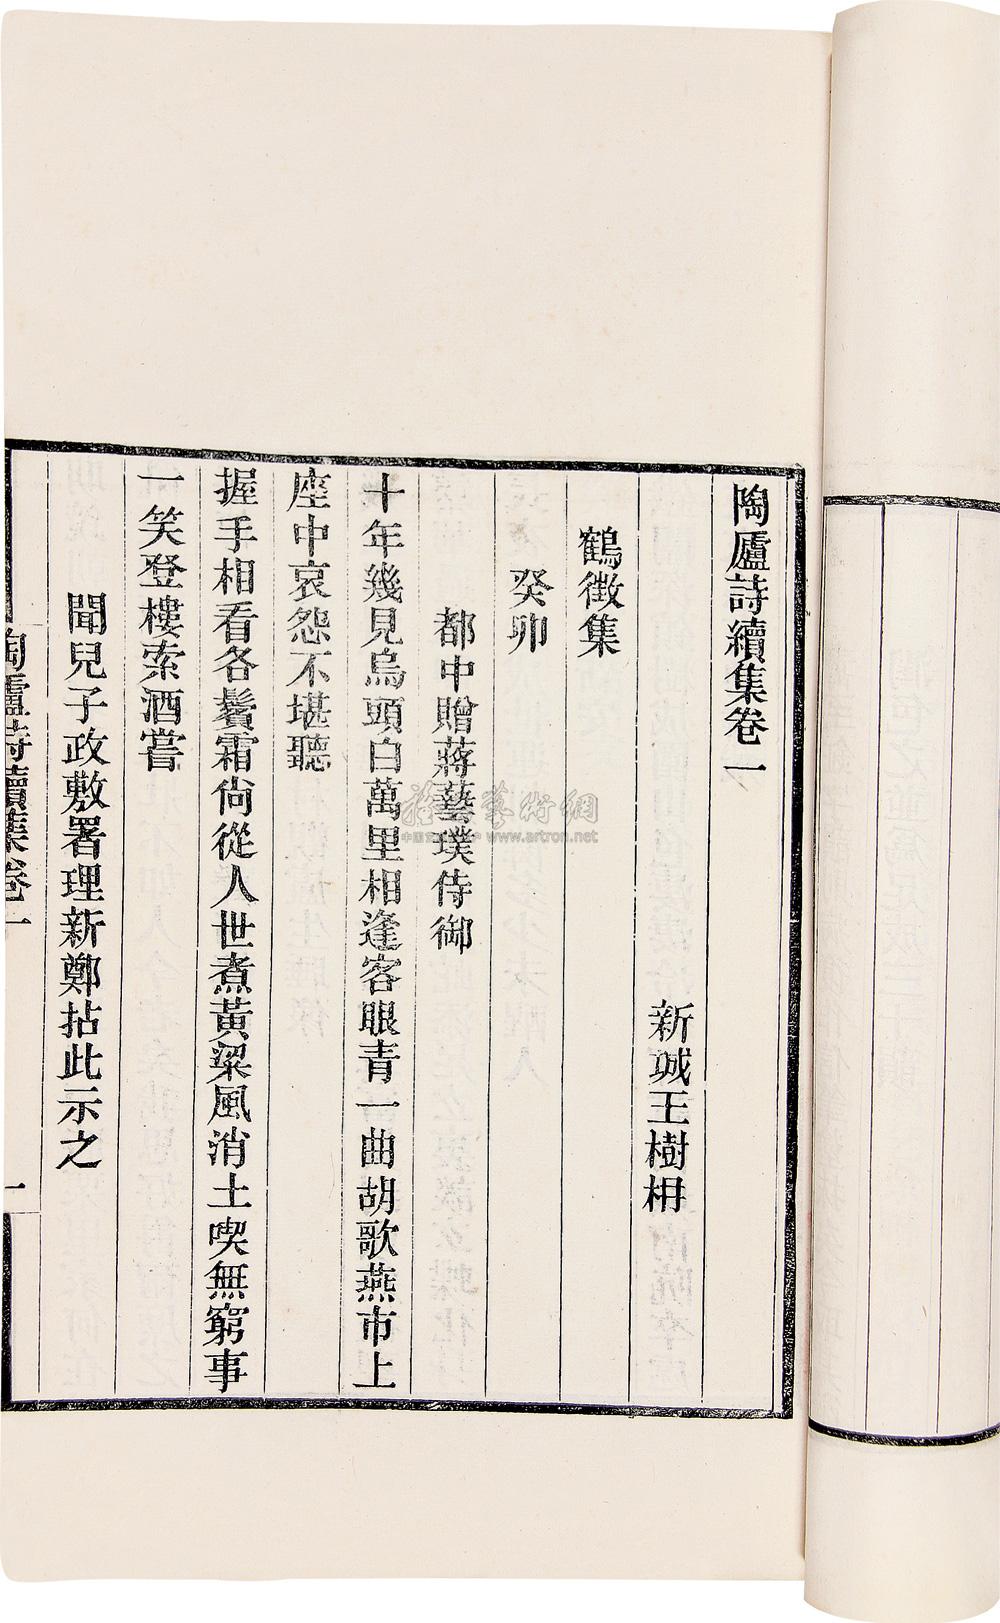 陶廬詩續集卷一
新城王樹枏
鶴徵集
癸卯
都中贈蔣藝璞侍御
十年幾見烏頭白萬里相逢客眼青一曲胡歌燕市上
座中哀怨不堪聽
握手相看各鬢霜尙從人世煮黃粱風消土喫無窮事
一笑登樓索酒嘗
聞兒子政敷署理新鄭拈此示之
陶廬詩續集卷一
一
藝術網
www.artron.net